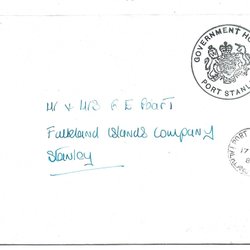 GOVERNMENT HO
PORT STANL
Mr & Mrs F E
Falkland Islands Company
Stanley
PORT
17